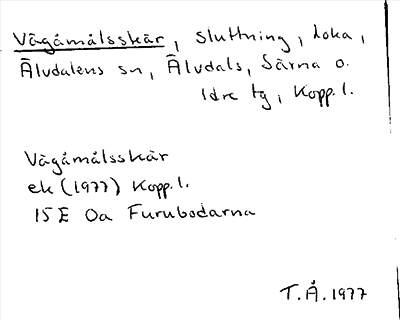 Vågåmålsskär, sluttning, Loka,
Älvdalens sn, Älvdals, Särna o.
Idre tg, Kopp. l.
Vågåmålsskär
ek (1977) Kopp. l.
15 E 0a Furubodarna
T.Å. 1977